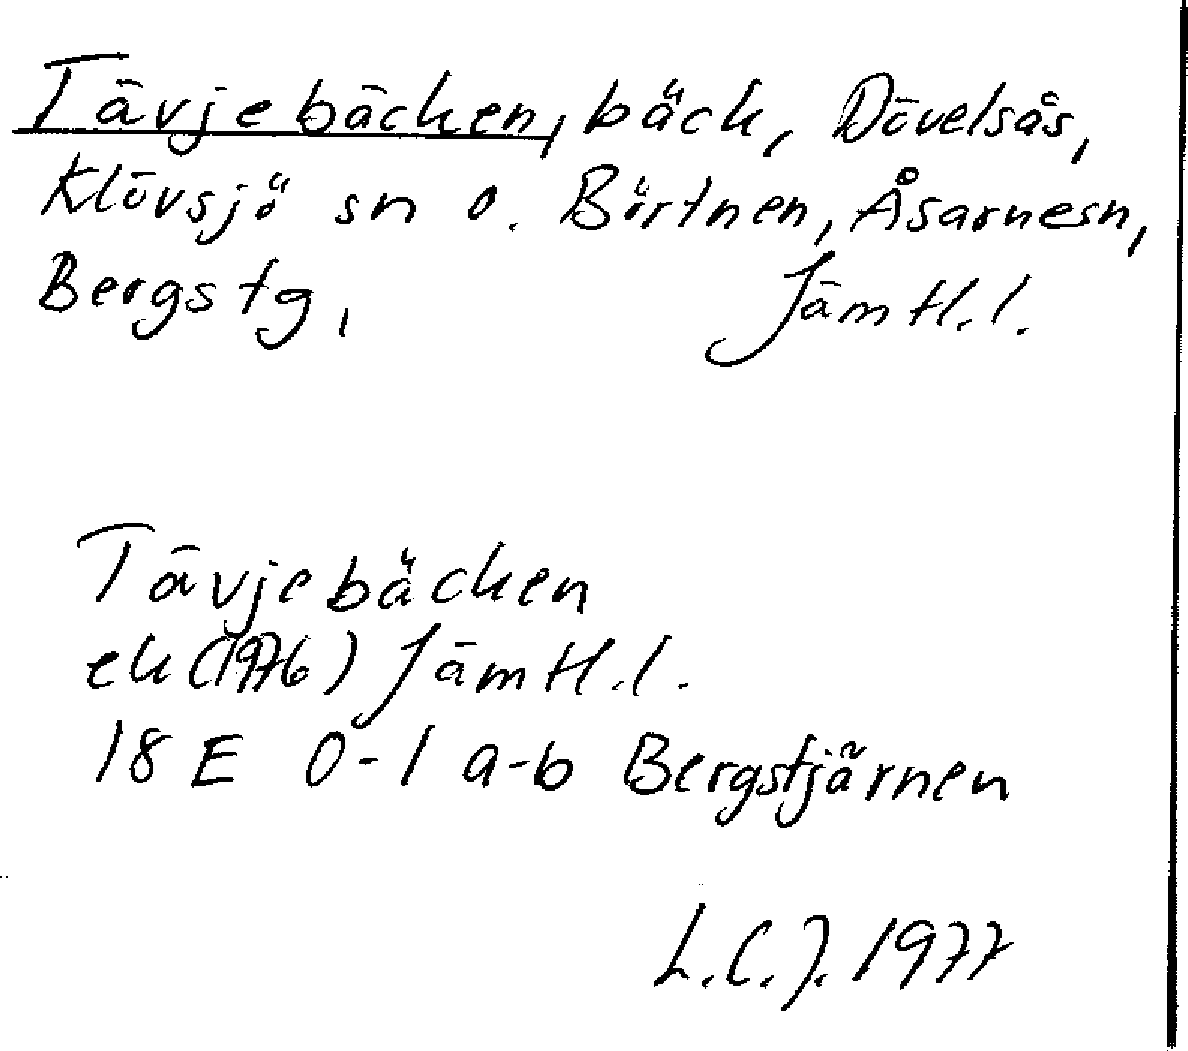 Tävjebäcken, bäck, Dövelsås,
Klövsjö sn o. Börtnen, Åsarnesn,
Bergs tg, Jämtl.l.
Tävjebäcken
ek (1976) Jämtl.l.
18 E 0-1 a-b Bergstjärnen
L.C.J. 1977